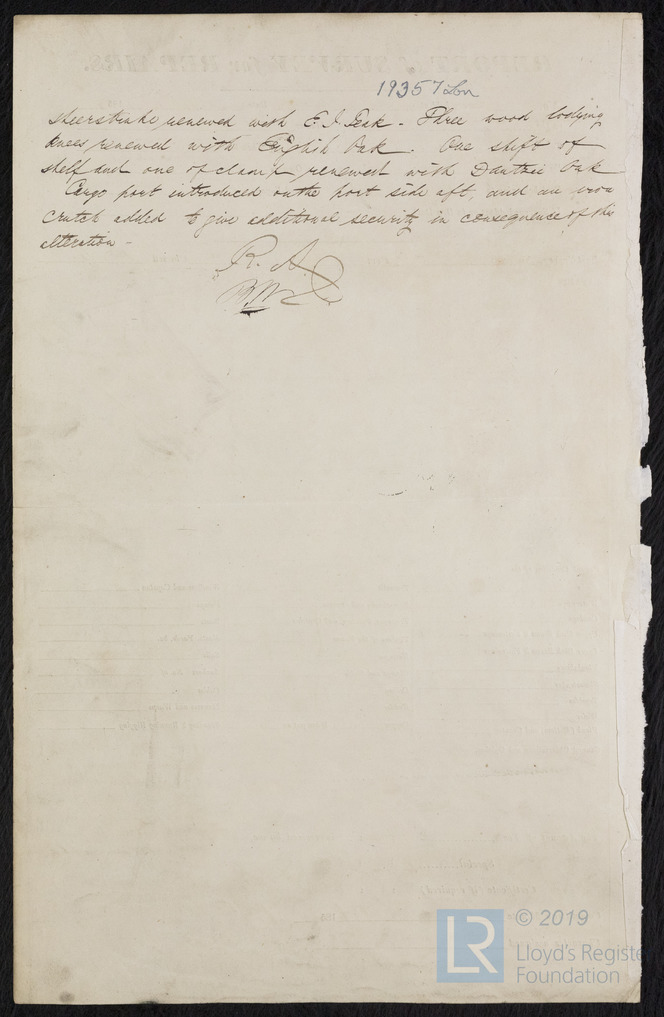 19357 Lon
sheerstrake renewed with E I Teak - Three wood lodging
knees renewed with English Oak. One shift of
shelf and one of clamp renewed with Dantzic Oak
Cargo port introduced on the port side aft, and an iron
Crutch added to give additional security in consequence of the
alteration -
R. A.
© 2019
LR
Lloyd's Register
Foundation